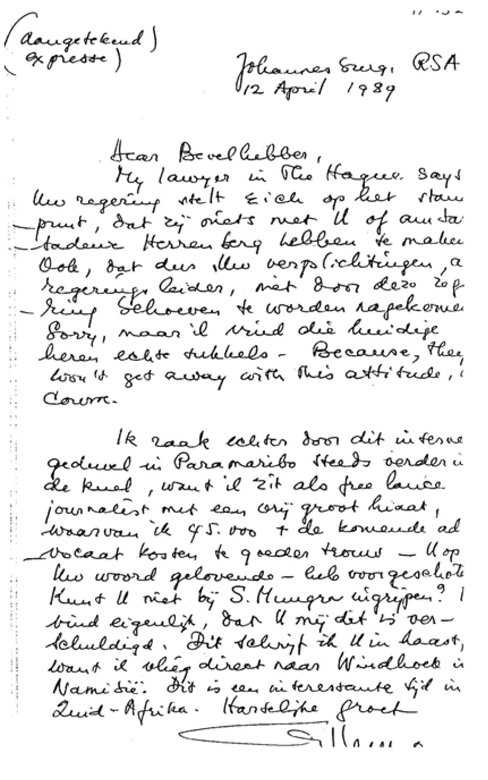 (aangetekend)
(expresse)
Johannesburg, RSA
12 April 1989
Dear Bevelhebber,
My lawyer in The Hague says
Uw regering stelt zich op het stan
punt, dat zij niets met U of amba
sadeur Herrenberg hebben te maken
Ook, dat dus Uw verplichtingen, a
regerings leider, niet door deze reg
ring behoeven te worden nagekomen
Sorry, maar ik vind die huidige
heren echte sukkels - Because, they
won't get away with this attitude,
Course.
Ik raak echter door dit interne
geduvel in Paramaribo steeds verder i
de knel, want ik zit als free lance
journalist met een vrij groot hiaat,
waarvan ik 45.000 + de komende ad
vocaat kosten te goeder trouw - U op
Uw woord gelovende - heb voorgeschote
Kunt U niet bij S. Mungra ingrijpen? I
vind eigenlijk, dat U mij dit is ver-
schuldigd. Dit schrijf ik U in haast,
want ik vlieg direct naar Windhoek in
Namibië. Dit is een interessante tijd in
Zuid-Afrika. Hartelijke groet